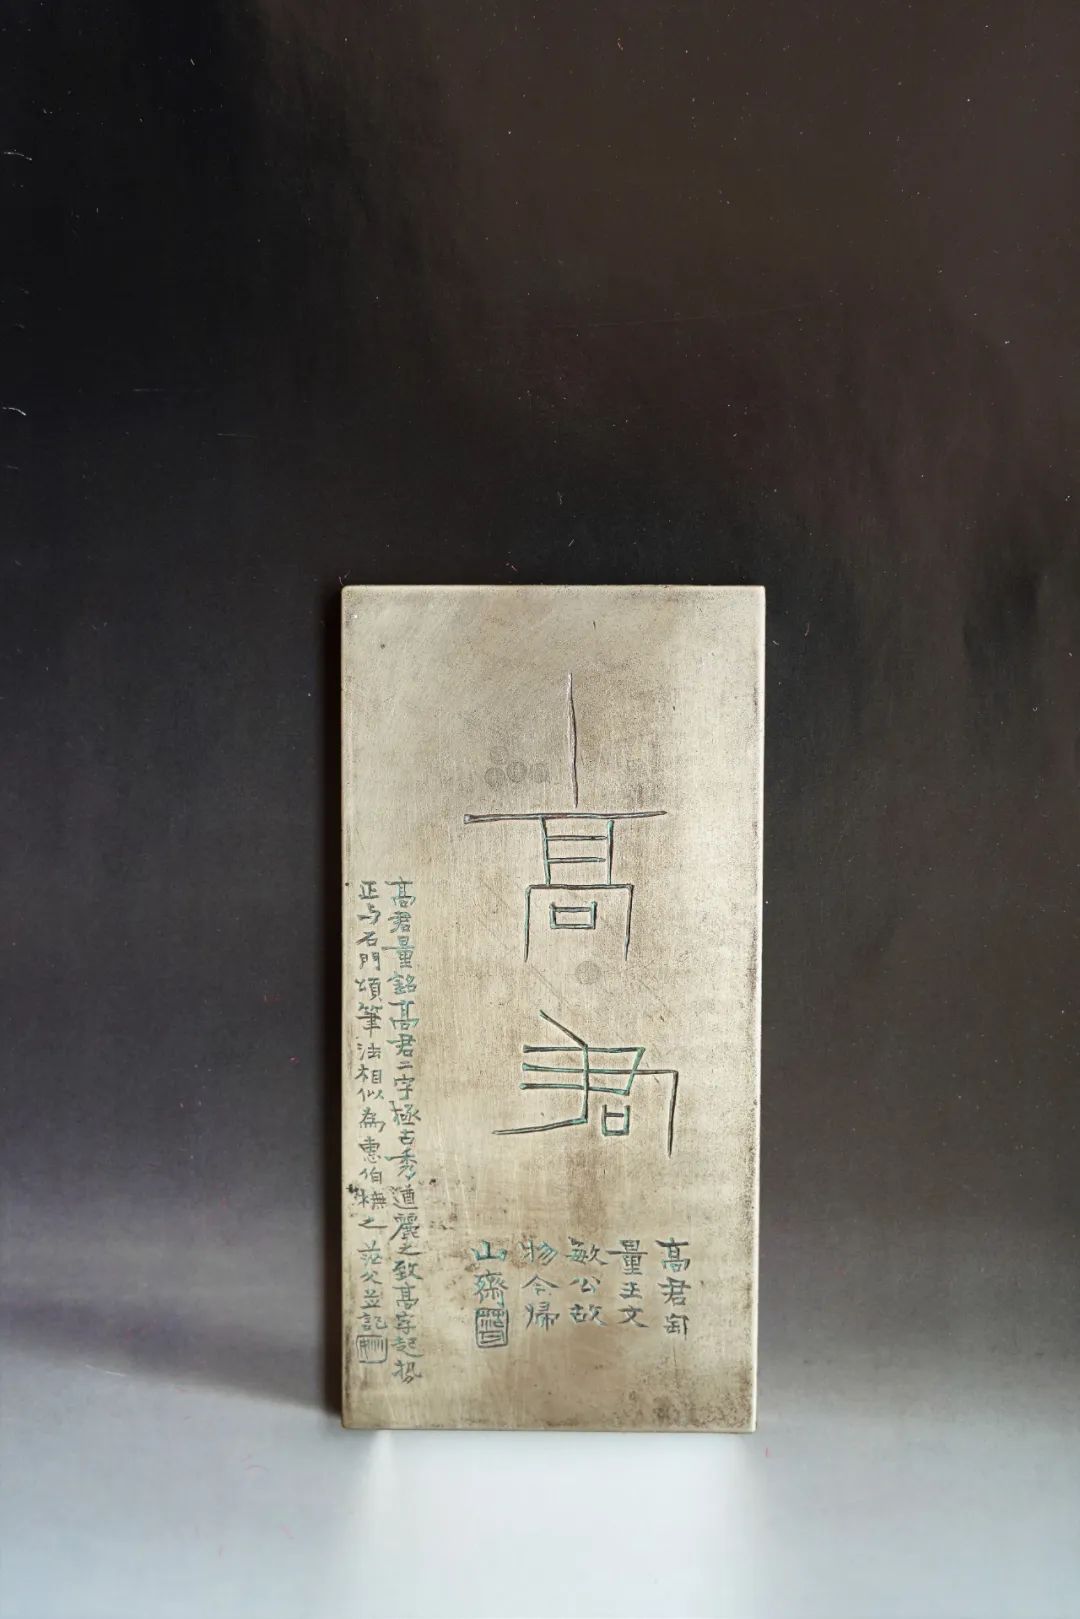 高君
高君缶
量王文
敏公故
物今歸
山齋
高君量銘高君二字極古秀遒麗之致高字起招
正与石門頌筆法相似為惠伯橅之茫父並記